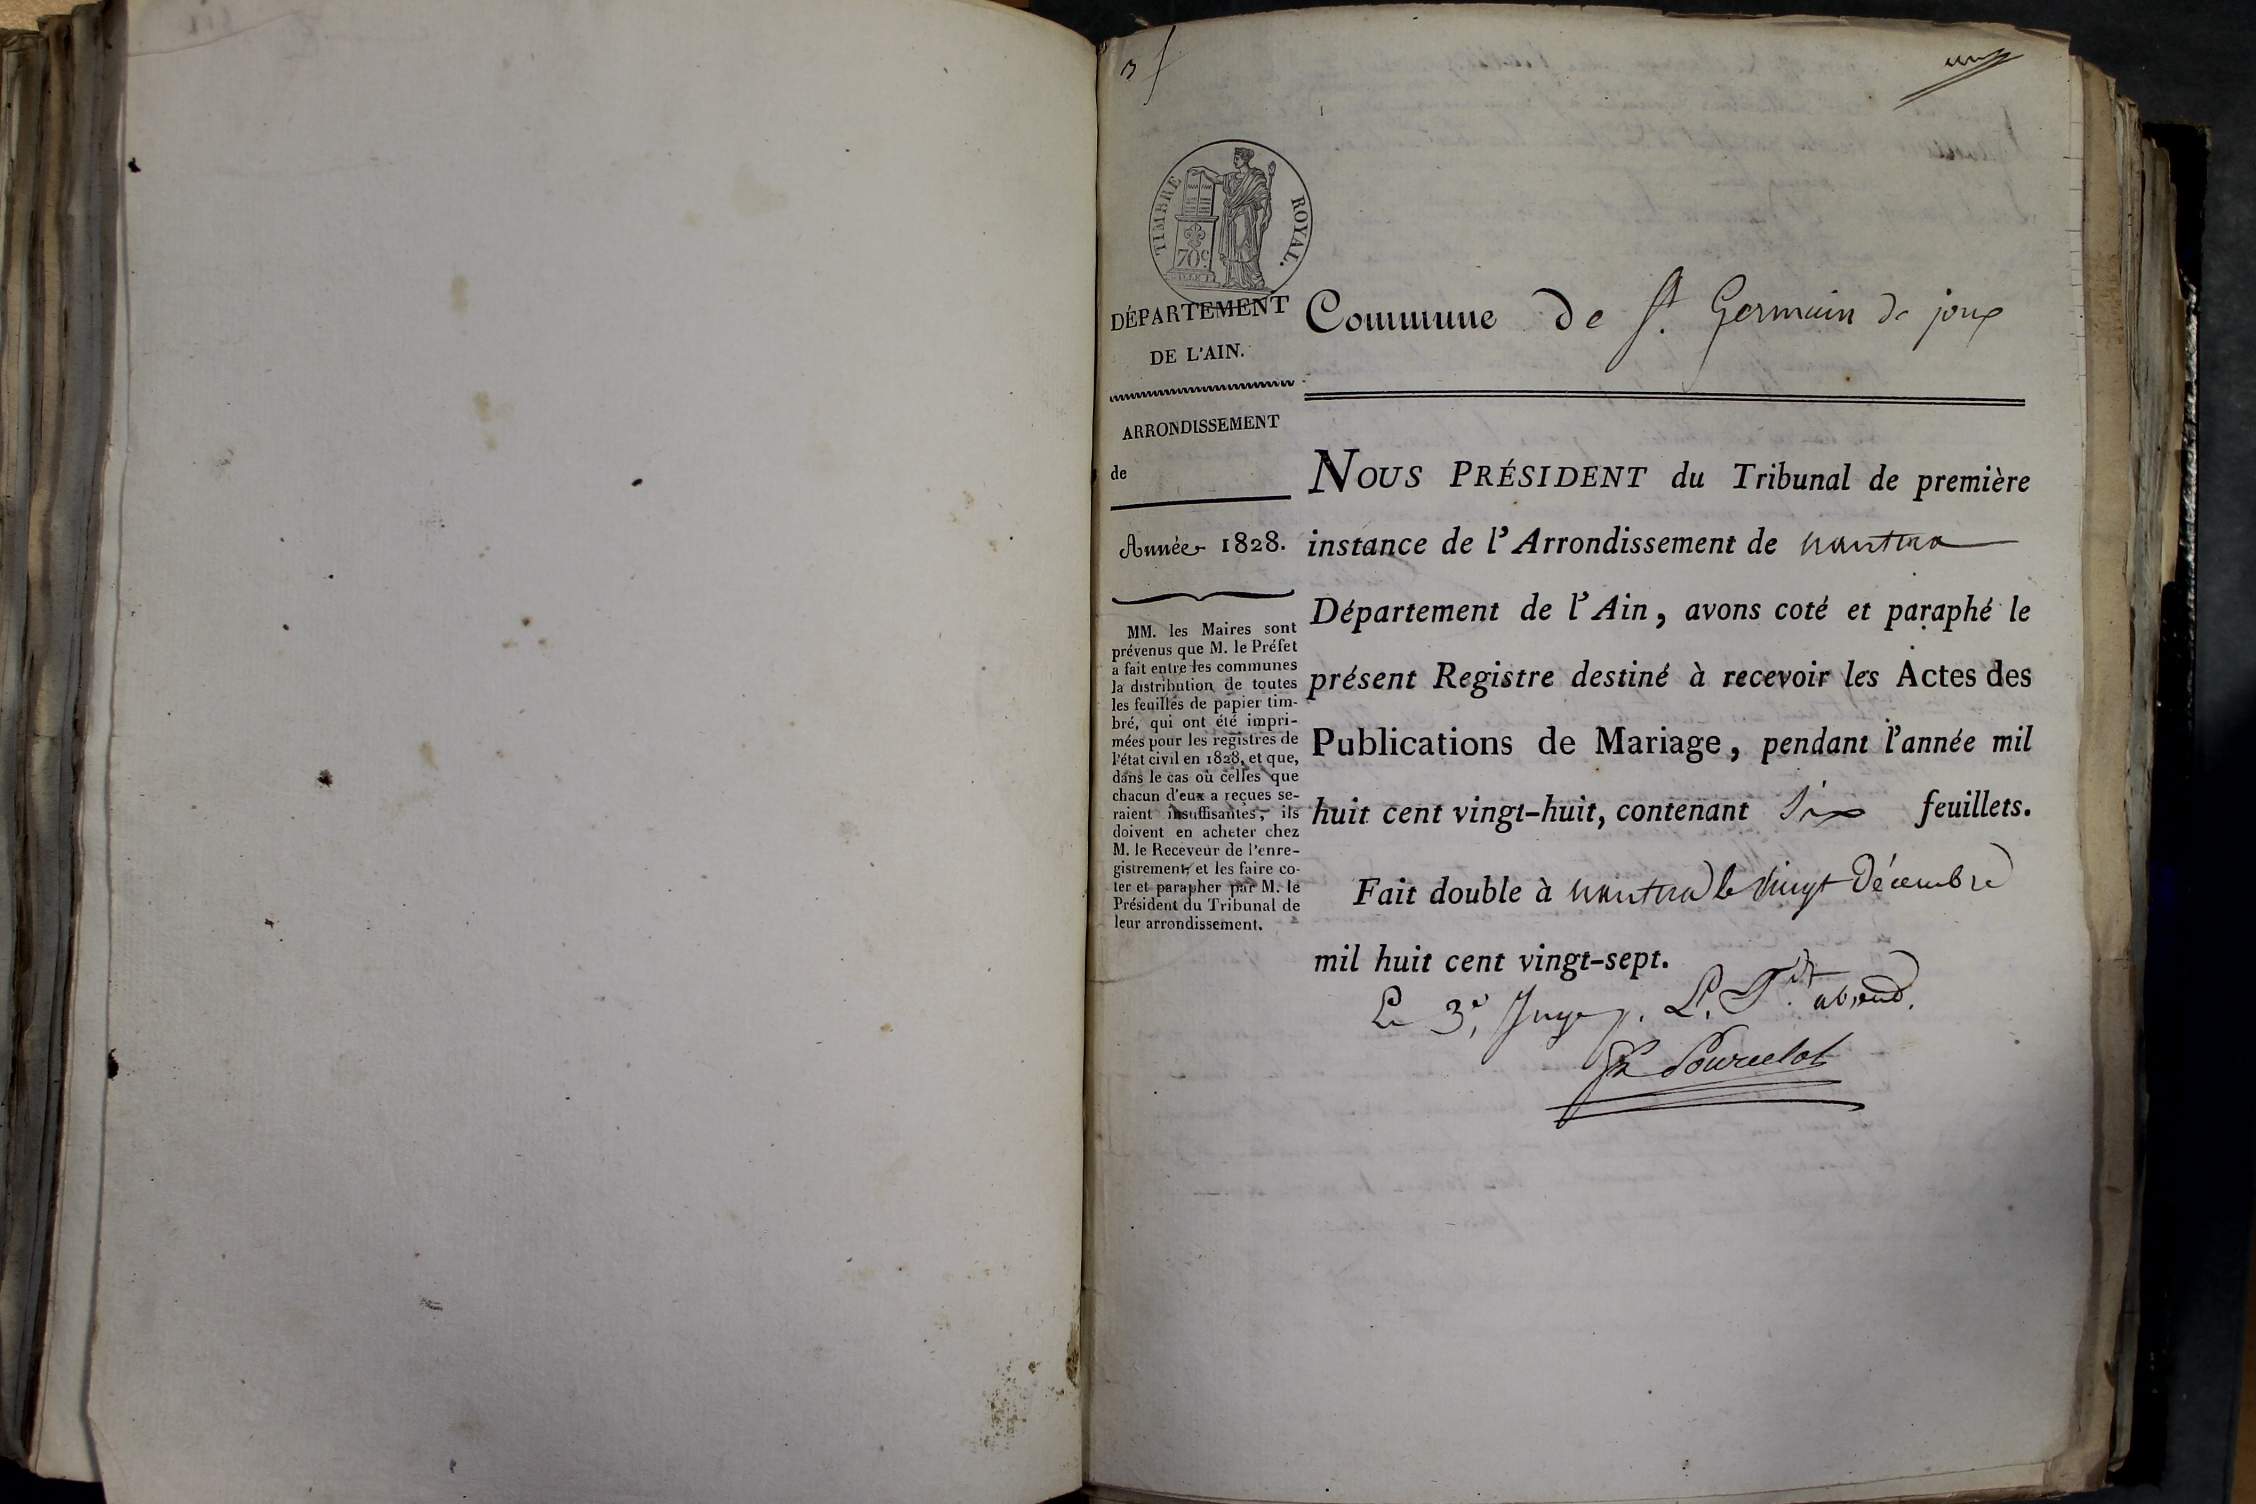 3
TIMBRE ROYAL.
70c.
DÉPARTEMENT
DE L'AIN.
ARRONDISSEMENT
de
Année 1828.
MM. les Maires sont
prévenus que M. le Préfet
a fait entre les communes
la distribution de toutes
les feuilles de papier tim-
bré, qui ont été impri-
mées pour les registres de
l'état civil en 1828, et que,
dans le cas où celles que
chacun d'eux a reçues se-
raient insuffisantes, ils
doivent en acheter chez
M. le Receveur de l'enre-
gistrement, et les faire co-
ter et parapher par M. le
Président du Tribunal de
leur arrondissement.
Commune de St. Germain de joux
NOUS PRÉSIDENT du Tribunal de première
instance de l'Arrondissement de nantua
Département de l'Ain, avons coté et paraphé le
présent Registre destiné à recevoir les Actes des
Publications de Mariage, pendant l'année mil
huit cent vingt-huit, contenant Six feuillets.
Fait double à nantua le vingt Décembre
mil huit cent vingt-sept.
Le 3e. Juge p. L. Pdt. absend.